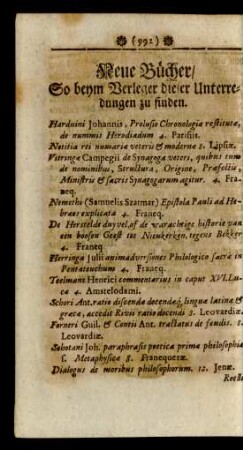 (992)
Neue Bücher/
So beym Verleger dieser Unterre-
dungen zu finden.
Harduini Johannis, Prolusio Chronologia restituta,
de nummis Herodiadum 4. Parisiis.
Notitia rei numaria veteris & moderna 8. Lipsiæ.
Vitringa Campegii de Synagoga veteri, quibus tum
de nominibus, Structura, Origine, Præfectis,
Ministris & sacris Synagogarum agitur. 4. Fra-
neq.
Nemethi (Samuelis Szatmar) Epistola Pauli ad He-
braos explicata 4. Franeq.
De Herstelde duyvel, of de waracheige historie van
een boosen Geest tot Nieukerken, tegens Bekker
4. Franeq
Herringa Julii animadversiones Philologico sacra in
Pentateuchum 4. Franeq.
Toelmans Henrici commentarius in caput XVI. Lu-
ca 4. Amstelodami.
Schori Ant. ratio discenda docendaq; lingua latina &
græca, accedit Rivii ratio docendi 8. Leovardiæ
Forneri Guil. & Contii Ant. tractatus de feudis. 8.
Leovardiæ.
Schotani Joh. paraphrasis poetica prima philosophia
s. Metaphysica 8. Franequeræ.
Dialogus de moribus philosophorum. 12. Jenæ.